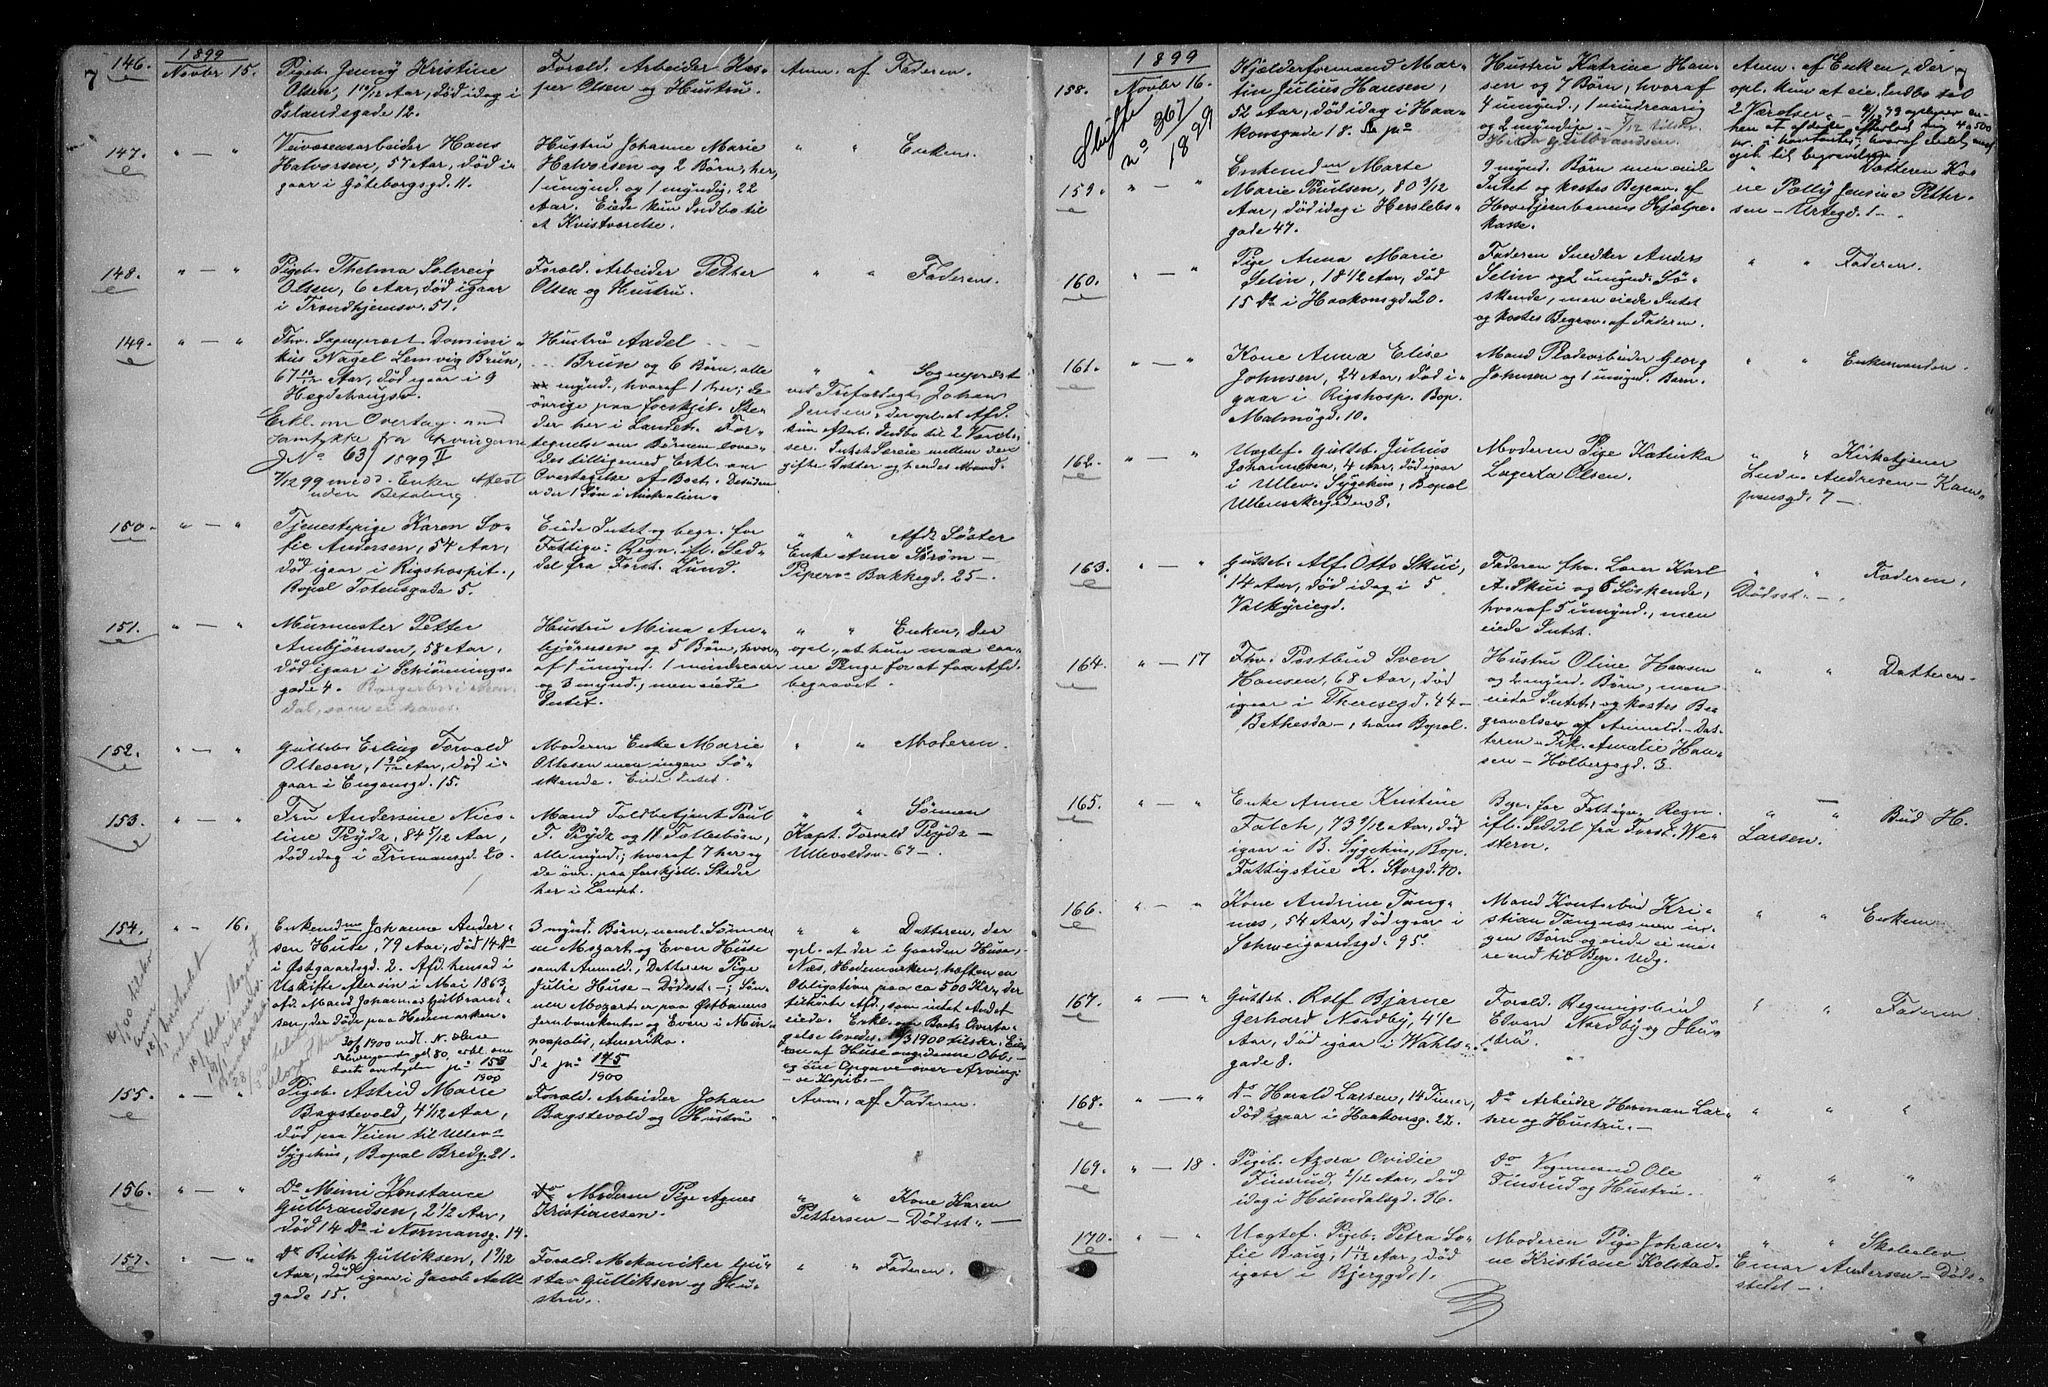 7
1899
146.
Novbr 15.
Pigeb. Jenny Kristine
Olsen, 1 10/12 Aar, död idag i
Islandsgade 12.
Forald. Arbeider Kas-
per Olsen og Hustru.
Anm. af Faderen.
147.
" — "
Veivæsensarbeider Hans
Halvorsen, 57 Aar, död i-
gaar i Göteborgsgd. 11.
Hustru Johanne Marie
Halvorsen og 2 Börn, her,
1 umynd. og 1 myndig, 22
Aar. Eiede kun Indbo til
et Kvistværelse.
" " Enken.
148.
" — "
Pigeb. Thelma Solveig
Olsen, 6 Aar, död igaar
i Trondhjemsv. 51.
Forald. Arbeider Petter
Olsen og Hustru.
" " Faderen.
149.
" — "
Fhv. Sogneprest Domini-
kus Nagel Lemvig Brun,
67 10/12 Aar, död igaar i 9
Hegdehaugsv.
Erkl. om Overtag. med
Samtykke fra Arvingerne
JNo 63/1899 II
Hustru Aadel
Brun og 6 Börn, alle
mynd., hvoraf 1 her; de
övrige paa forskjel. Ste-
der her i Landet. For-
tegnelse om Börnene love-
des tilligemed Erkl. om
Overtagelse af Boet. Desuden
er der 1 Sön i Australien.
" " Sogneprest
ved Johan
Jensen, der opl. at Afd.
kun efterl. Indbo til 2 Værel-
ser. Intet Særeie mellem den
gifte Datter og hendes Mand.
150.
" — "
Tjenestepige Karen So-
fie Andersen, 54 Aar,
död igaar i Rigshospit.,
Bopal Totensgade 5.
Eiede Intet og begr. for
Fattigv. Regn. ifl. Sed-
del fra Forst. Lund.
" " Afdz Söster
Enke Anne Ström —
Piperv. Bakkegd. 25 —.
151.
" — "
Murmester Petter
Arnbjörnsen, 58 Aar,
död igaar i Schiönnings-
gade 4.
Hustru Mina Arn-
björnsen og 5 Börn, hvor-
af 1 umynd. 1 mindreaar.
og 3 mynd., men eiede
Intet.
" " Enken, der
opl., at hun maa laa-
ne Penge for at faa Afd.
begravet.
152.
" — "
Gutteb. Erling Torvald
Ottesen, 1 9/12 Aar, död i-
gaar i Eugensgd. 15.
Moderen Enke Marie
Ottesen men ingen Sö-
skende. Eiede Intet.
" " Moderen.
153.
" — "
Fru Andersine Nico-
line Pryds, 84 5/12 Aar,
död idag i Tinmansgd. 20.
Mand Toldbetjent Paul
F. Pryds og 11 Fællesbörn,
alle mynd.; hvoraf 7 her og
de övr. paa forskjell. Steder
her i Landet.
" " Sönnen
Kapt. Torvald Pryds —
Ullevoldsv. 67 —.
154.
" — 16.
Enkemdm Johanne Ander-
sen Huse, 79 Aar, död 14 Ds
i Östgaardsgd. 2. Afd. hensad i
Uskifte efter sin i Mai 1863
afd. Mand Johannes Gulbrand-
sen, der döde paa Hedemarken.
1900 mdl. N. Huse
3 mynd. Börn, neml. Sönner-
ne Mozart og Even Huse
samt Anmeld., Datteren Pige
Julie Huse — Dödsst. —; Sön-
nen Mozart er paa Østbanens
Jernbanekontor og Even i Min-
neapolis, Amerika.
Se pv 145/1900
" " Datteren, der
opl. at der i Gaarden Huse,
Næs, Hedemarken, hæften en
Obligation paa ca 500 Kr., der
tilhörte Afd., som intet Andet
eiede. Erkl. om Boets Overta-
gelse lovedes.
155.
" — "
Pigeb. Astrid Marie
Bagstevold, 4 1/12 Aar,
död paa Veien til Ullev.
Sygehus, Bopal Bredg. 21.
Forald. Arbeider Johan
Bagstevold og Hustru
Anm. af Faderen.
156.
" — "
Do Mimi Konstance
Gulbrandsen, 2 1/2 Aar,
död 14 Ds i Normansg. 14.
Moderen Pige Agnes
Kristiansen.
" " Kone Karen
Pettersen — Dödsst. —
157.
" — "
Do Ruth Gulliksen, 1 9/12
Aar, död igaar i Jacob Aalls
gade 15.
Forald. Mekaniker Gu-
stav Gulliksen og Hu-
stru.
" " Faderen.
1899
158.
Novbr 16.
Skifte
No 367/1899
Kjælderformand Mar-
tin Julius Hansen,
52 Aar, död idag i Haa-
konsgade 18.
Hustru Katrine Han-
sen og 7 Börn, hvoraf
4 umynd., 1 mindreaarig
og 2 myndige.
Anm. af Enken, der
opl. kun at eie Indbo til
2 Værelser.
159.
" — "
Enkemdm Marte
Marie Poulsen, 80 3/12
Aar, död idag i Herslebs-
gade 47.
9 mynd. Börn men eiede
Intet og kostes Begrav. af
Hovedjernbanens Hjælpe-
kasse.
" " Datteren Ko-
ne Polly Jensine Petter-
sen — Urtegd. 1 —.
160.
" — "
Pige Anna Marie
Selin, 18 1/2 Aar, död
15 Ds i Haakonsgd. 20.
Faderen Snedker Anders
Selin og 2 umynd. Sö-
skende, men eiede Intet
og kostes Begrav. af Faderen.
" " Faderen.
161.
" — "
Kone Anna Elise
Johnsen, 24 Aar, död i-
gaar i Rigshosp. Bop.
Malmögd. 10.
Mand Pladearbeider Georg
Johnsen og 1 umynd. Barn.
" " Enkemanden.
162.
" — "
Uegtef. Gutteb. Julius
Johannesen, 4 Aar, död igaar
i Ullev. Sygehus, Bopal
Ullensakergaden 8.
Moderen Pige Katinka
Lagerta Olsen.
" " Kirketjener
Ludv. Andresen — Kam-
pensgd. 7 —
163.
" — "
Gutteb. Alf Otto Skui,
14 Aar, död idag i 5
Valkyriegd.
Faderen fhv. Lærer Karl
A. Skui og 6 Söskende,
hvoraf 5 umynd., men
eiede Intet.
" " Faderen,
Dödsst. —.
164.
" — 17
Fhv. Postbud Sven
Hansen, 68 Aar, död
igaar i Theresegd. 44 —
Bethesda —, hans Bopal.
Hustru Oline Hansen
og 2 mynd. Börn, men
eiede Intet, og kostes Be-
gravelsen af Anmeld. Dat-
teren — Frk. Amalie Han-
sen — Holbergsgd. 3.
" " Datteren.
165.
" — "
Enke Anne Kristine
Falch, 73 9/12 Aar, död
igaar i B. Sygehus, Bop.
Fattigstue K. Storgd. 40.
Begr. for Fattigv. Regn.
ifl. Seddel fra Forst. We-
stern.
" " Bud H.
Larsen.
166.
" — "
Kone Andrine Tang-
næs, 54 Aar, död igaar i
Schweigaardsgd. 95.
Mand Kontorbud Kri-
stian Tangnæs men in-
gen Börn og eiede ei me-
re end til Begr. Udg.
" " Enkem
167.
" — "
Gutteb. Rolf Bjarne
Gerhard Nordby, 4 1/2
Aar, död igaar i Wahls-
gade 8.
Forald. Regningsbud
Edvard Nordby og Hu-
stru.
" " Faderen.
168.
" — "
Do Harald Larsen, 14 Timer,
död igaar i Haakonsg. 22.
Do Arbeider Herman Lar-
sen og Hustru. —
" " "
169.
" — 18
Pigeb. Agora Ovidie
Finsrud, 2/12 Aar, död
idag i Heimdalsgd. 36.
Do Vognmand Ole
Finsrud og Hustru.
" " "
170.
" — "
Uegtef. Pigeb. Petra So-
fie Bang, 1 11/12 Aar, död
igaar i Bjerggd. 1.
Moderen Pige Johan-
ne Kristiane Kolstad.
" " Skoleelev
Einar Andersen — Döds-
stedet —.